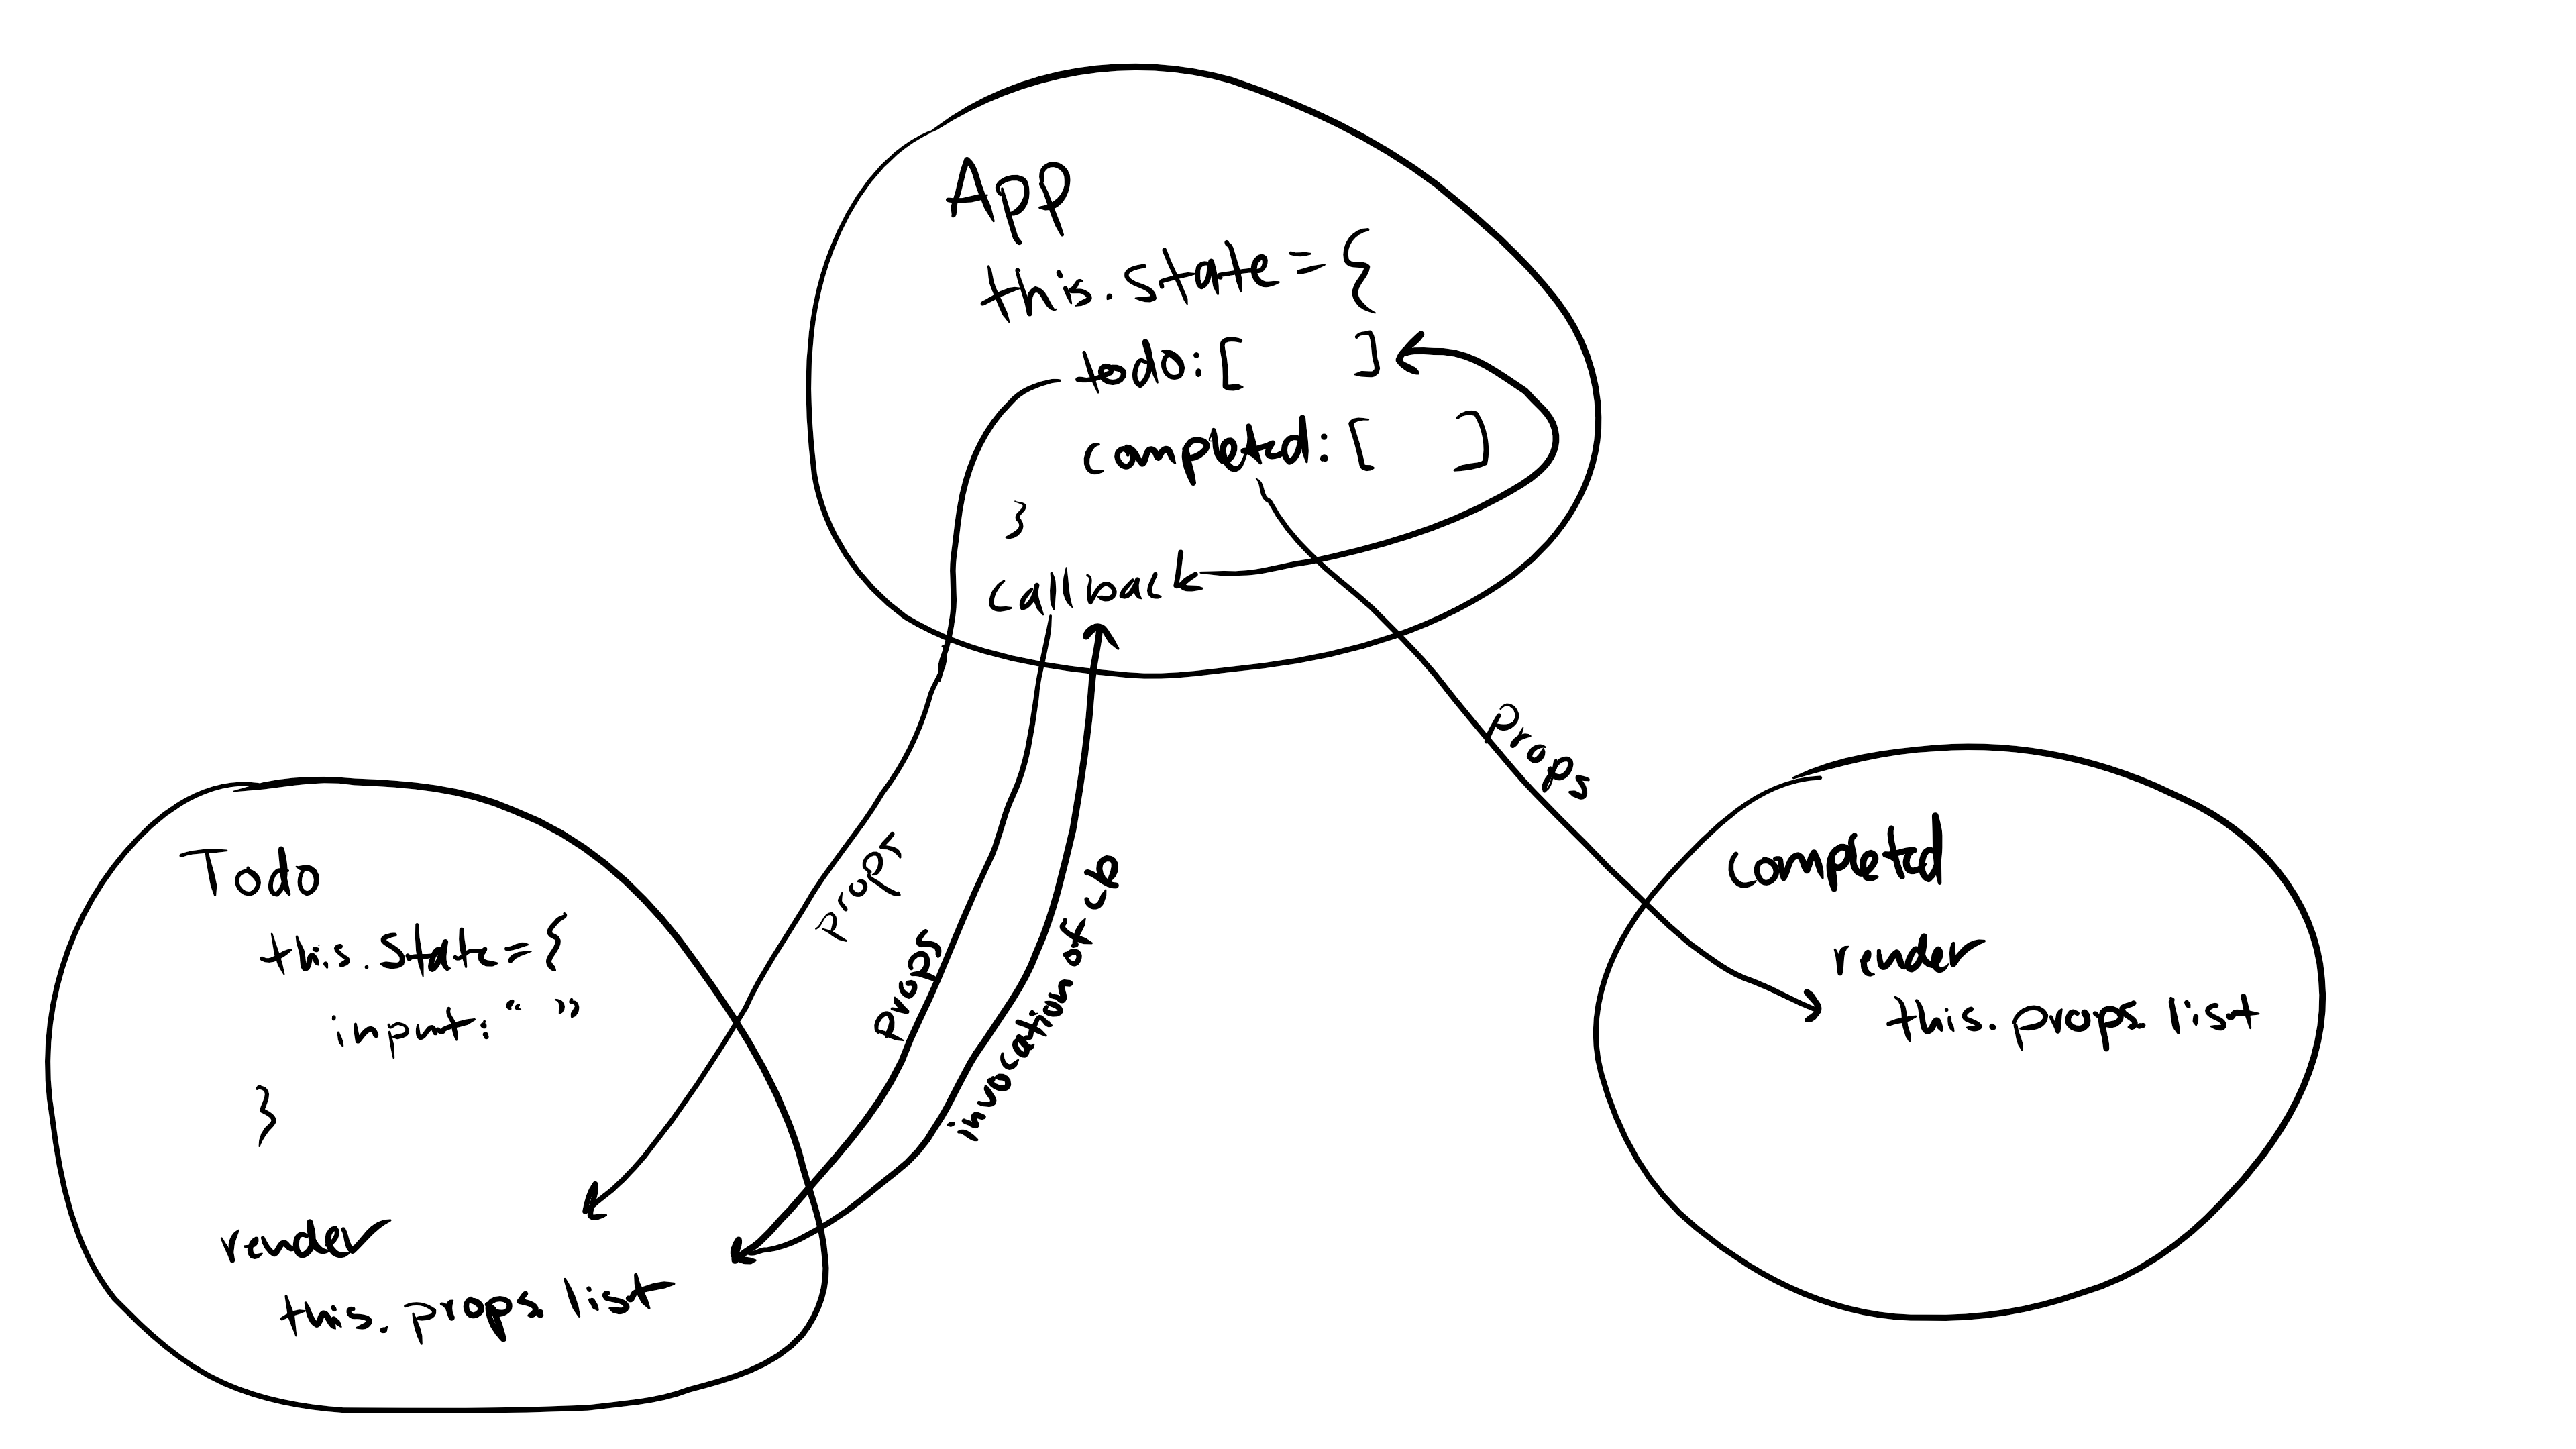 App
this.state = {
todo: [ ]
completed: [ ]
}
callback
props
props
invocation of cb
props
Todo
this.state = {
input: “ ”
}
render
this.props.list
completed
render
this.props.list